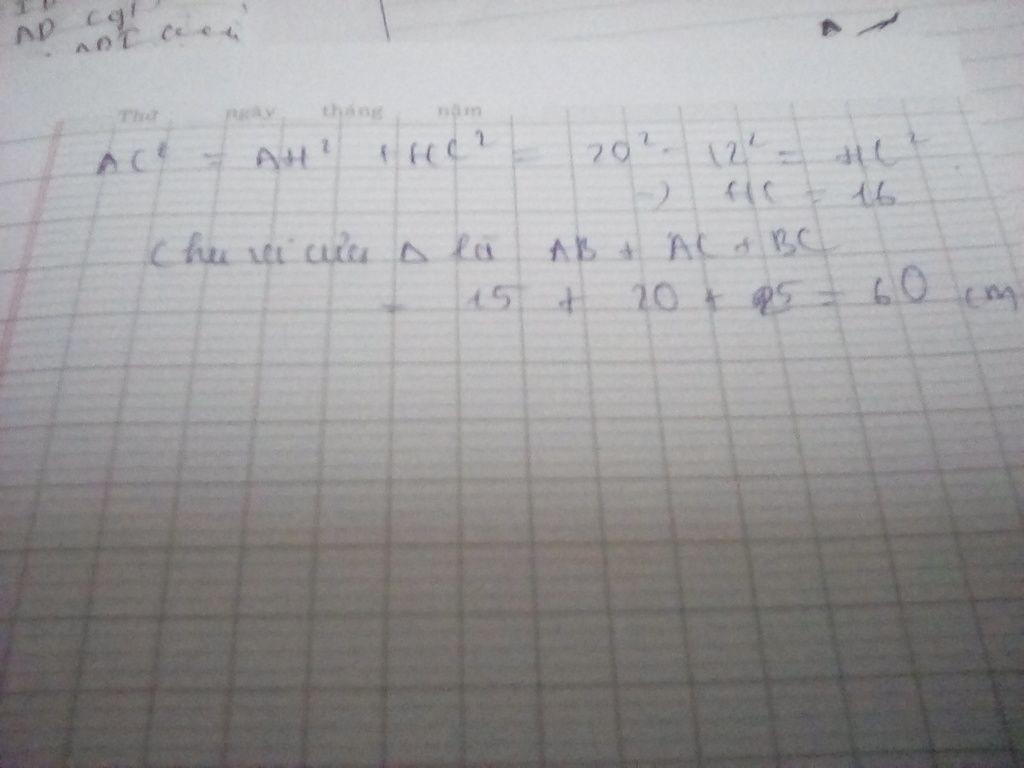 Thứ ngày tháng năm
AC² = AH² + HC² = 20² - 12² = HC²
→ HC = 16
Chu vi của Δ là AB + AC + BC
= 15 + 20 + 25 = 60 cm